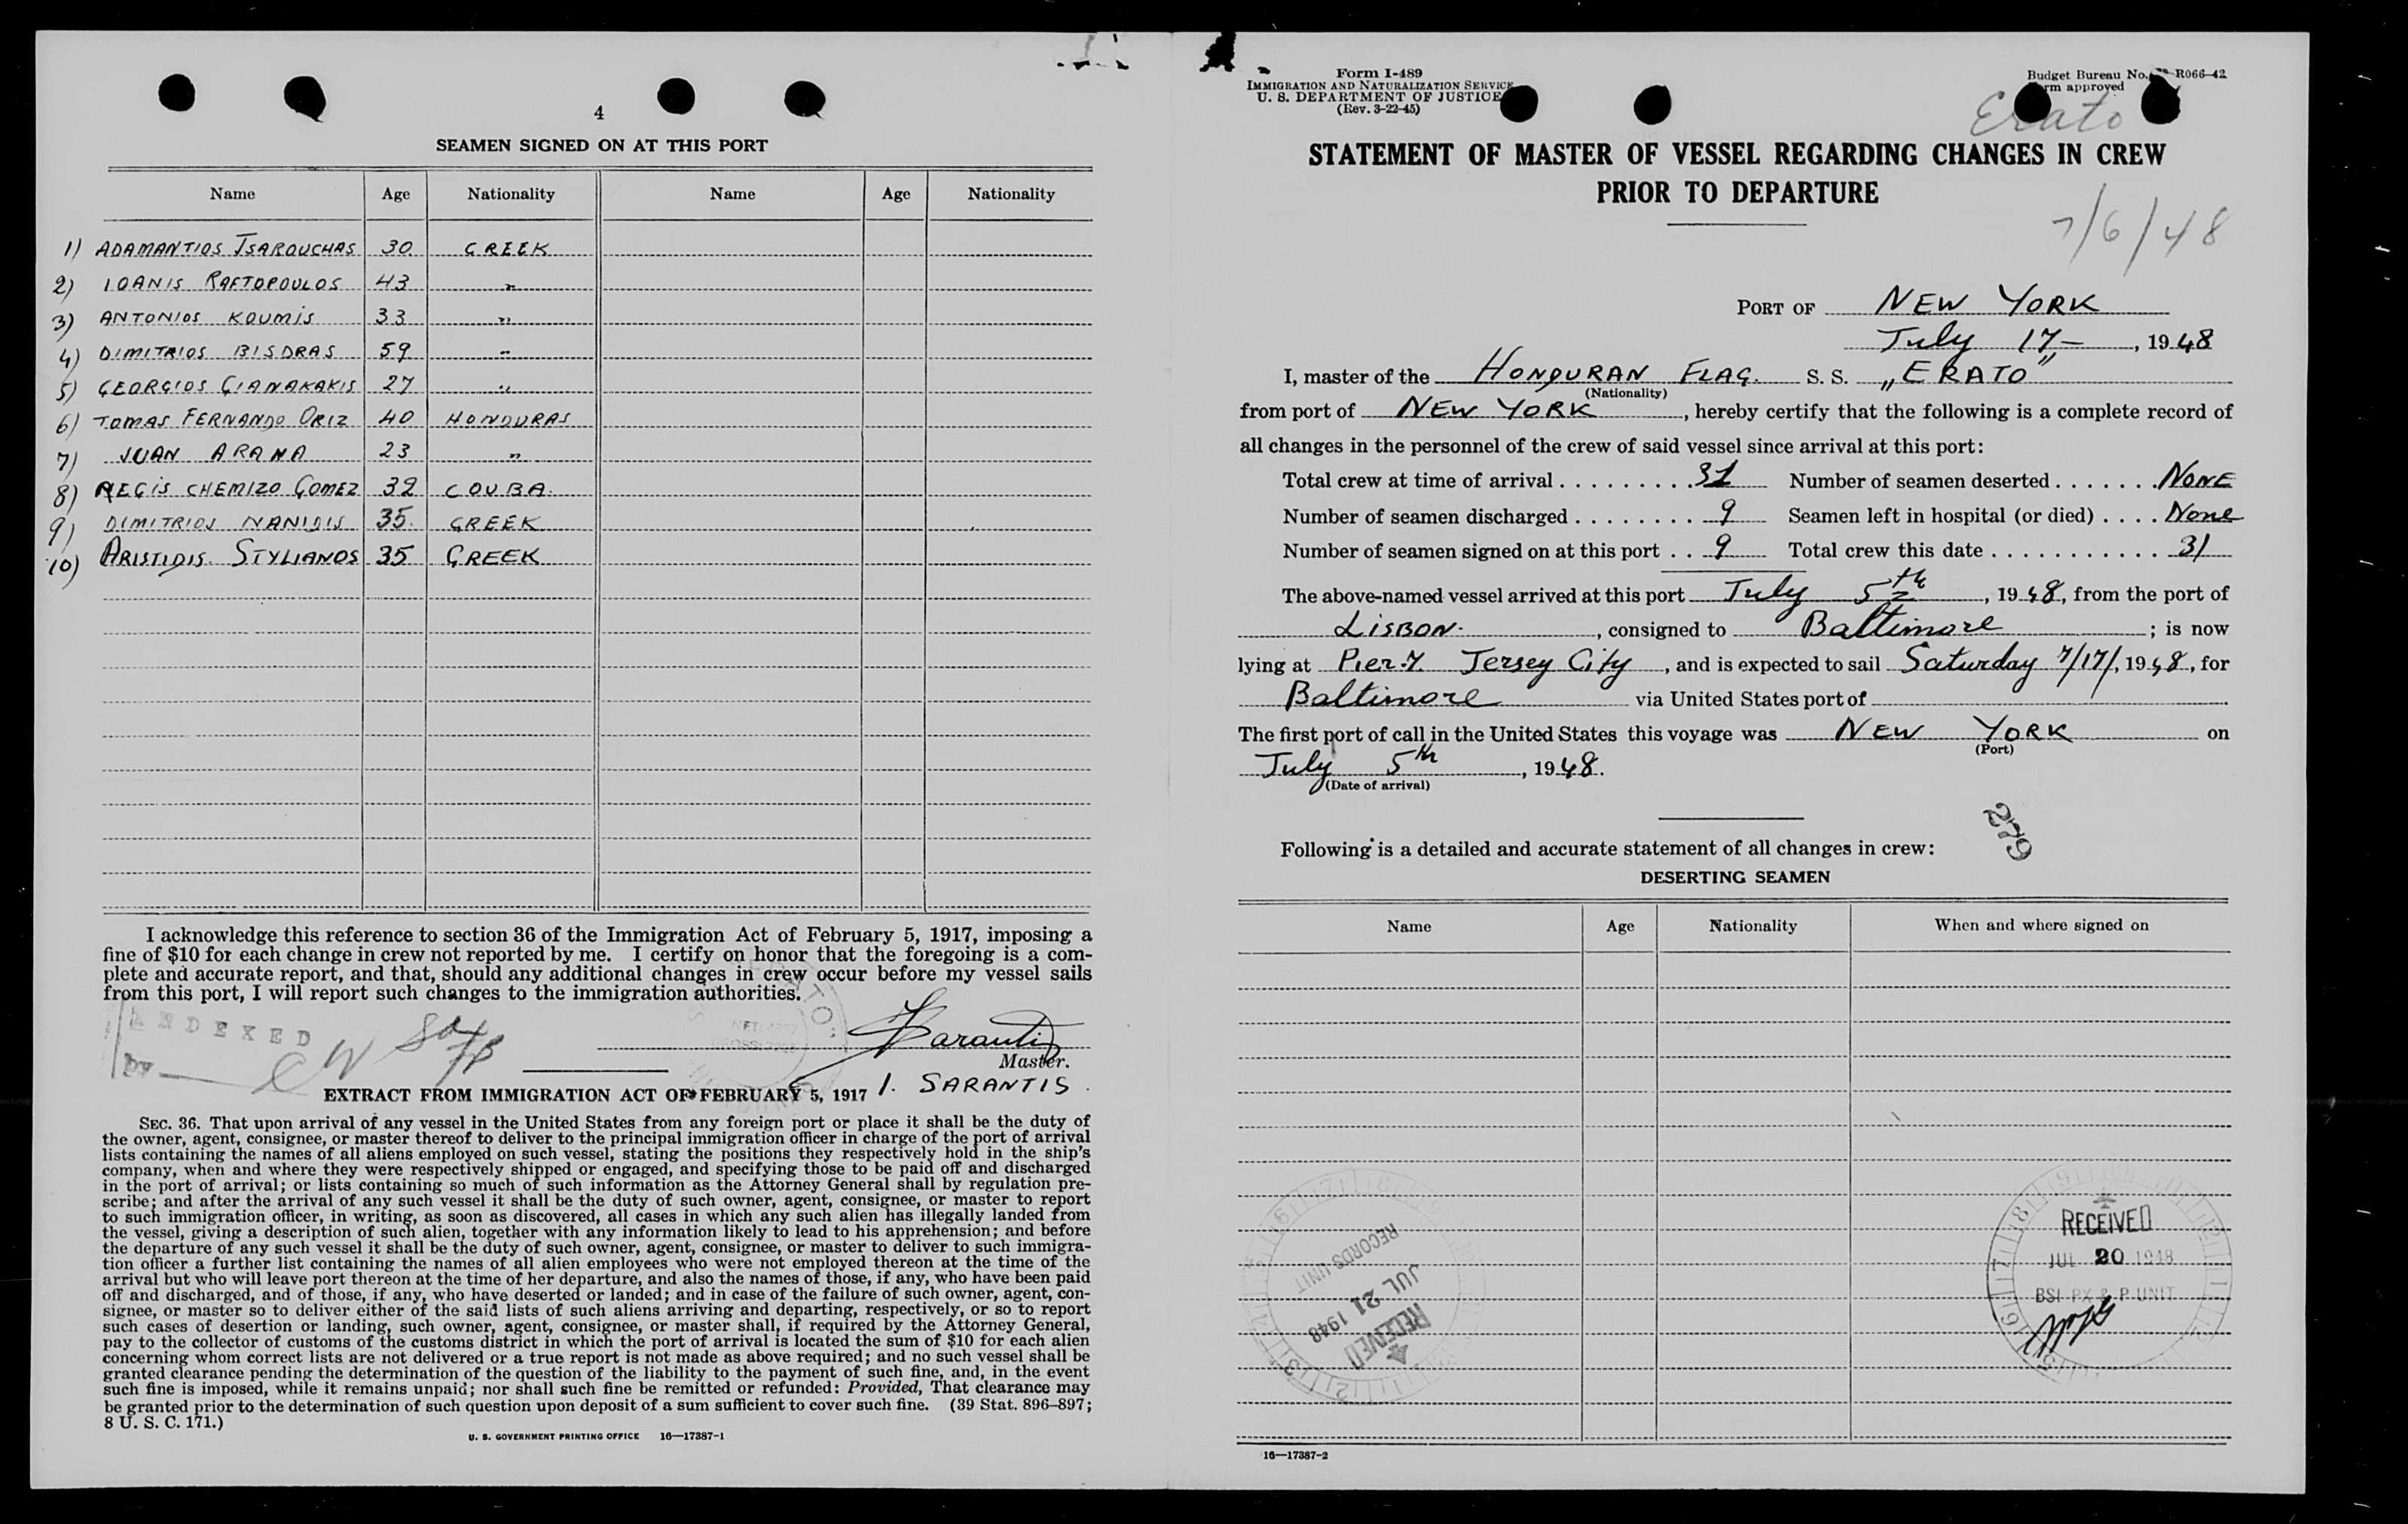 4
SEAMEN SIGNED ON AT THIS PORT
Name Age Nationality Name Age Nationality
1) ADAMANTIOS TSAROUCHAS 30 GREEK
2) IOANIS RAFTOPOULOS 43 "
3) ANTONIOS KOUMIS 33 "
4) DIMITRIOS BISDRAS 59 "
5) GEORGIOS GIANAKAKIS 27 "
6) TOMAS FERNANDO ORIZ 40 HONDURAS
7) JUAN ARANA 23 "
8) REGIS CHEMIZO GOMEZ 32 COUBA.
9) DIMITRIOS NANIDIS 35. GREEK
10) ARISTIDIS. STYLIANOS 35 GREEK
I acknowledge this reference to section 36 of the Immigration Act of February 5, 1917, imposing a
fine of $10 for each change in crew not reported by me. I certify on honor that the foregoing is a com-
plete and accurate report, and that, should any additional changes in crew occur before my vessel sails
from this port, I will report such changes to the immigration authorities.
INDEXED
BY
CW
Sarantis
Master.
I. SARANTIS
EXTRACT FROM IMMIGRATION ACT OF FEBRUARY 5, 1917
SEC. 36. That upon arrival of any vessel in the United States from any foreign port or place it shall be the duty of
the owner, agent, consignee, or master thereof to deliver to the principal immigration officer in charge of the port of arrival
lists containing the names of all aliens employed on such vessel, stating the positions they respectively hold in the ship's
company, when and where they were respectively shipped or engaged, and specifying those to be paid off and discharged
in the port of arrival; or lists containing so much of such information as the Attorney General shall by regulation pre-
scribe; and after the arrival of any such vessel it shall be the duty of such owner, agent, consignee, or master to report
to such immigration officer, in writing, as soon as discovered, all cases in which any such alien has illegally landed from
the vessel, giving a description of such alien, together with any information likely to lead to his apprehension; and before
the departure of any such vessel it shall be the duty of such owner, agent, consignee, or master to deliver to such immigra-
tion officer a further list containing the names of all alien employees who were not employed thereon at the time of the
arrival but who will leave port thereon at the time of her departure, and also the names of those, if any, who have been paid
off and discharged, and of those, if any, who have deserted or landed; and in case of the failure of such owner, agent, con-
signee, or master so to deliver either of the said lists of such aliens arriving and departing, respectively, or so to report
such cases of desertion or landing, such owner, agent, consignee, or master shall, if required by the Attorney General,
pay to the collector of customs of the customs district in which the port of arrival is located the sum of $10 for each alien
concerning whom correct lists are not delivered or a true report is not made as above required; and no such vessel shall be
granted clearance pending the determination of the question of the liability to the payment of such fine, and, in the event
such fine is imposed, while it remains unpaid; nor shall such fine be remitted or refunded: Provided, That clearance may
be granted prior to the determination of such question upon deposit of a sum sufficient to cover such fine. (39 Stat. 896–897;
8 U. S. C. 171.)
U. S. GOVERNMENT PRINTING OFFICE 16—17387-1
Form I-489
IMMIGRATION AND NATURALIZATION SERVICE
U. S. DEPARTMENT OF JUSTICE
(Rev. 3-22-45)
Budget Bureau No. R066-42
approved
Erato
STATEMENT OF MASTER OF VESSEL REGARDING CHANGES IN CREW
PRIOR TO DEPARTURE
7/6/48
PORT OF NEW YORK
July 17–, 1948
I, master of the HONDURAN FLAG. S. S. „ERATO"
(Nationality)
from port of NEW YORK, hereby certify that the following is a complete record of
all changes in the personnel of the crew of said vessel since arrival at this port:
Total crew at time of arrival . . . . . . . . . 31 Number of seamen deserted . . . . . . . NONE
Number of seamen discharged . . . . . . . . 9 Seamen left in hospital (or died) . . . . None
Number of seamen signed on at this port . . 9 Total crew this date . . . . . . . . . . . . 31
The above-named vessel arrived at this port July 5th, 1948, from the port of
LISBON., consigned to Baltimore; is now
lying at Pier.7. Jersey City, and is expected to sail Saturday 7/17/, 1948, for
Baltimore via United States port of
The first port of call in the United States this voyage was NEW YORK on
(Port)
July 5th, 1948.
(Date of arrival)
279
Following is a detailed and accurate statement of all changes in crew:
DESERTING SEAMEN
Name Age Nationality When and where signed on
RECEIVED
JUL 21 1948
RECORDS UNIT
RECEIVED
JUL 20 1948
BSI PX & P UNIT
16—17387-2